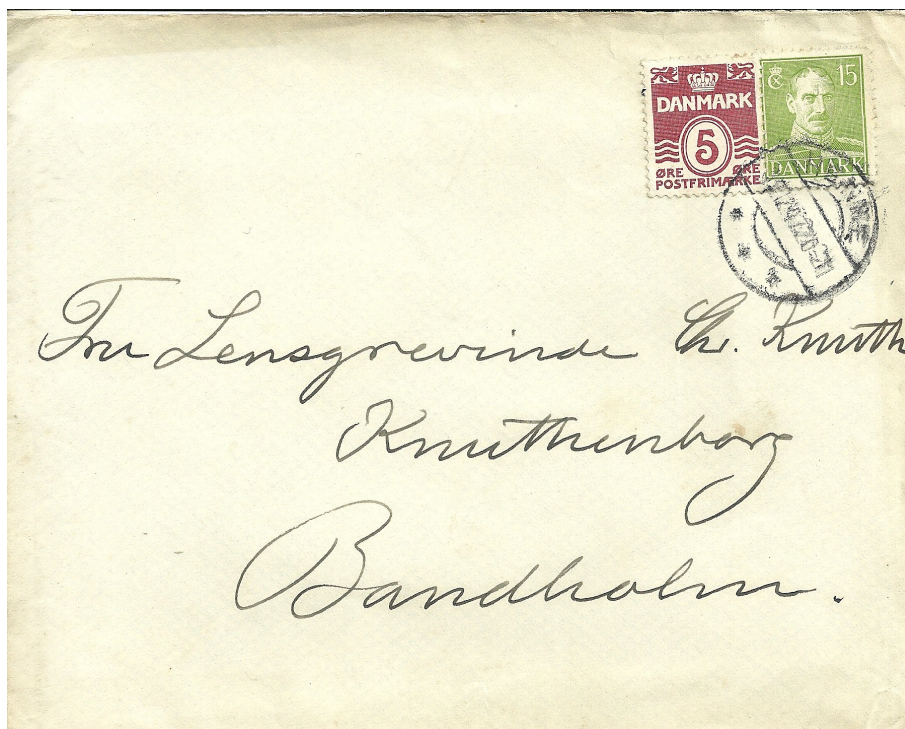 DANMARK
5
ØRE ØRE
POSTFRIMÆRKE
15
DANMARK
Fru Lensgrevinde Chr. Knuth
Knuthenborg
Bandholm.